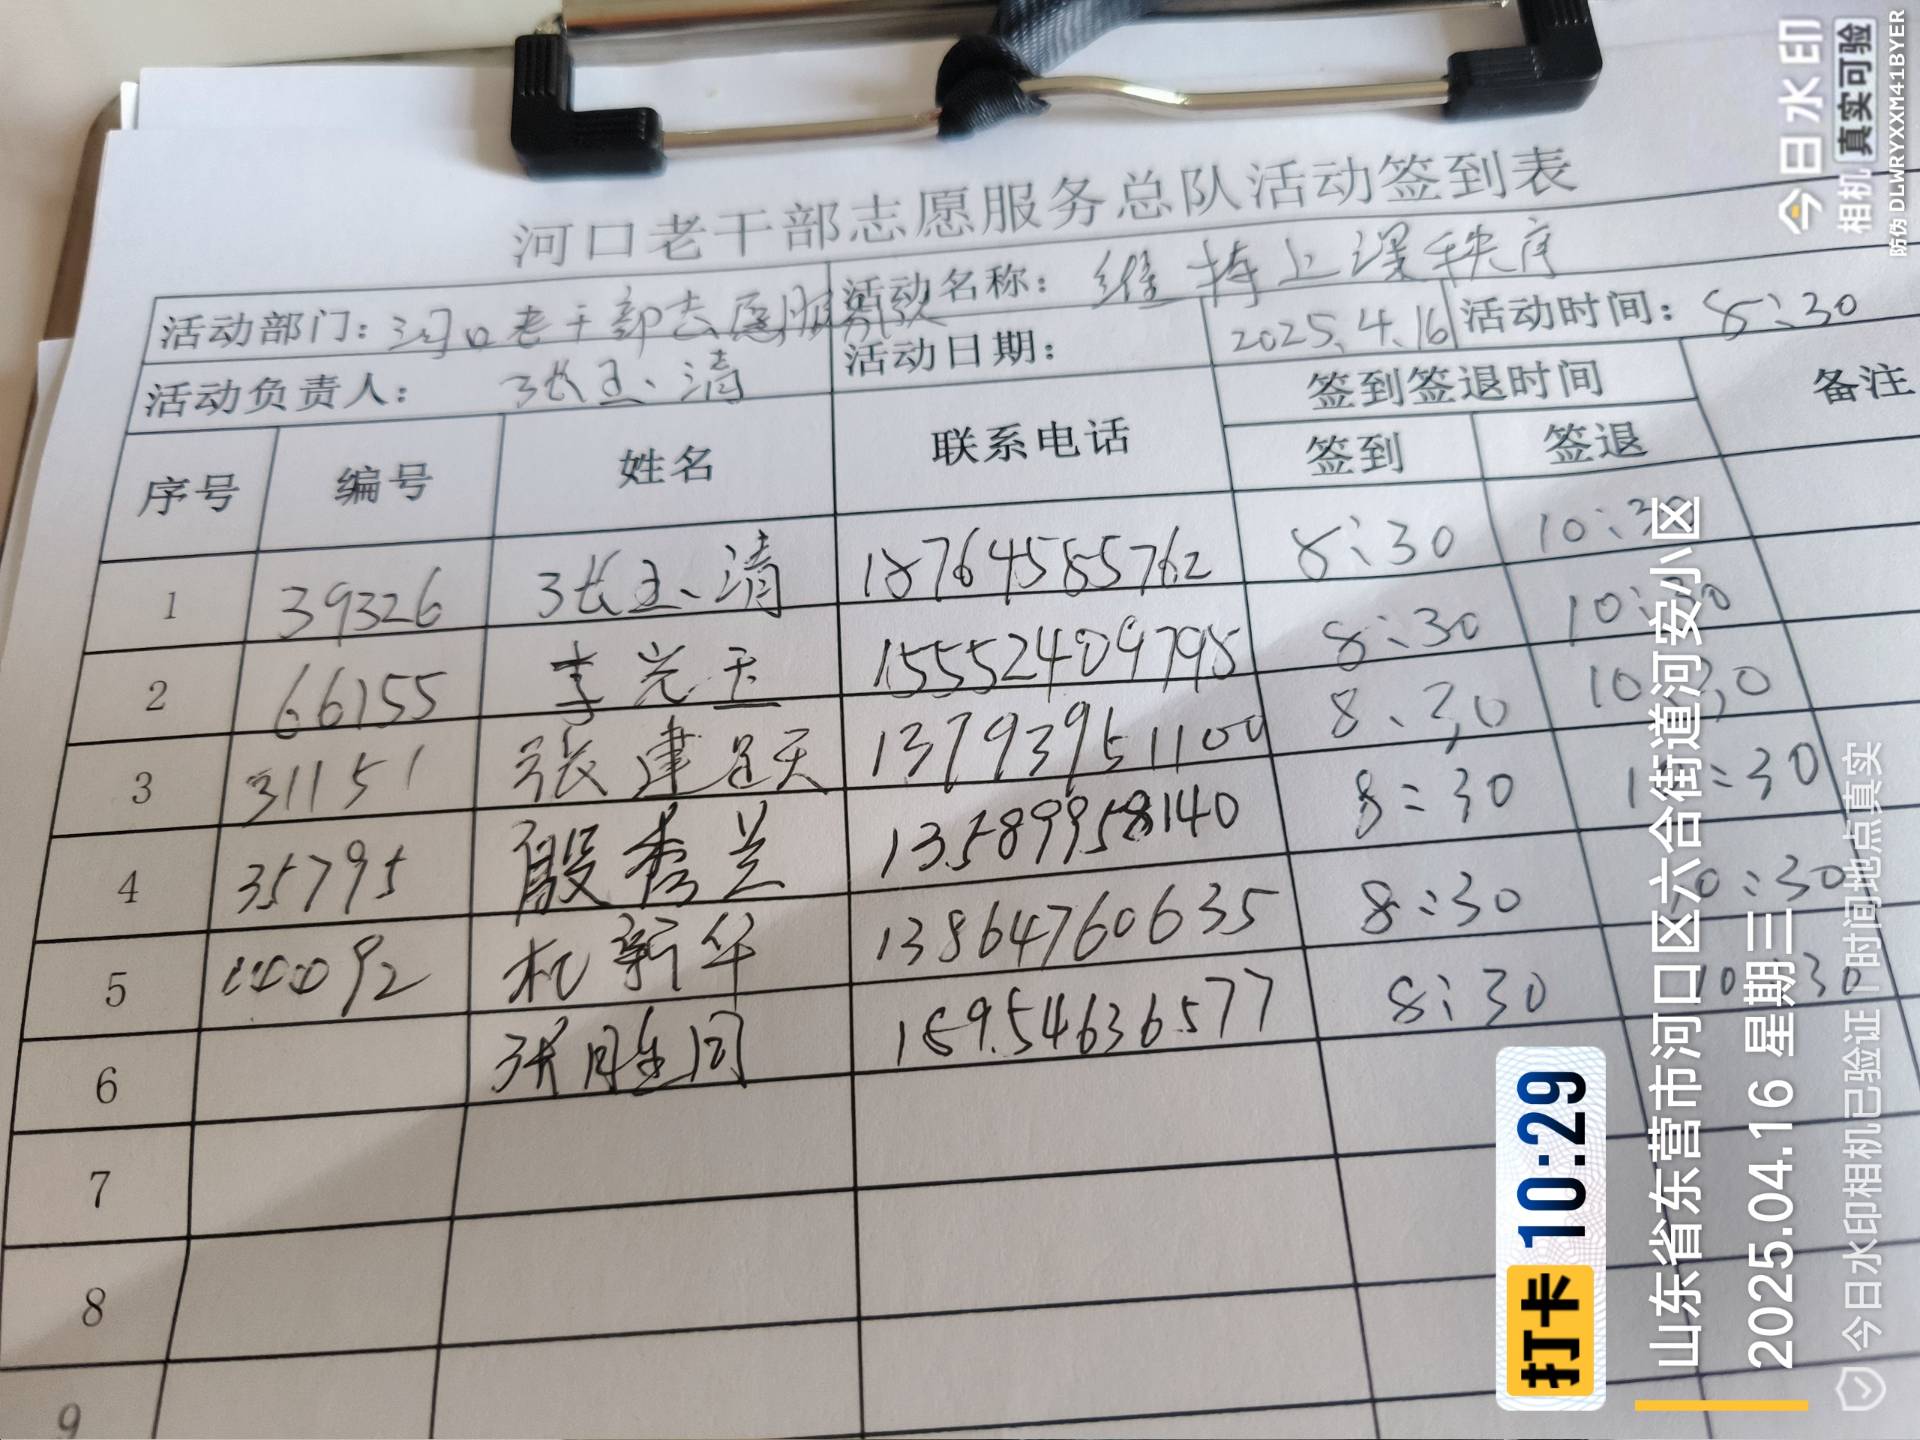 河口老干部志愿服务总队活动签到表
活动部门：河口老干部志愿服务队 活动名称：维持上课秩序
活动负责人：张玉清 活动日期： 2025.4.16 活动时间：8:30
序号 编号 姓名 联系电话 签到签退时间 备注
签到 签退
1 39326 张玉清 18764585762 8:30 10:30
2 66155 李光玉 15552409795 8:30 10:30
3 31151 张建 13793951100 8:30 10:30
4 35795 殷秀兰 13589958140 8:30 10:30
5 100092 杭新华 13864760635 8:30 10:30
6 张月 18954636577 8:30 10:30
7
8
9
今日水印
相机 真实可验
防伪 DLWRYXXM41BYER
打卡 10:29
山东省东营市河口区六合街道河安小区
2025.04.16 星期三
今日水印相机已验证 时间地点真实